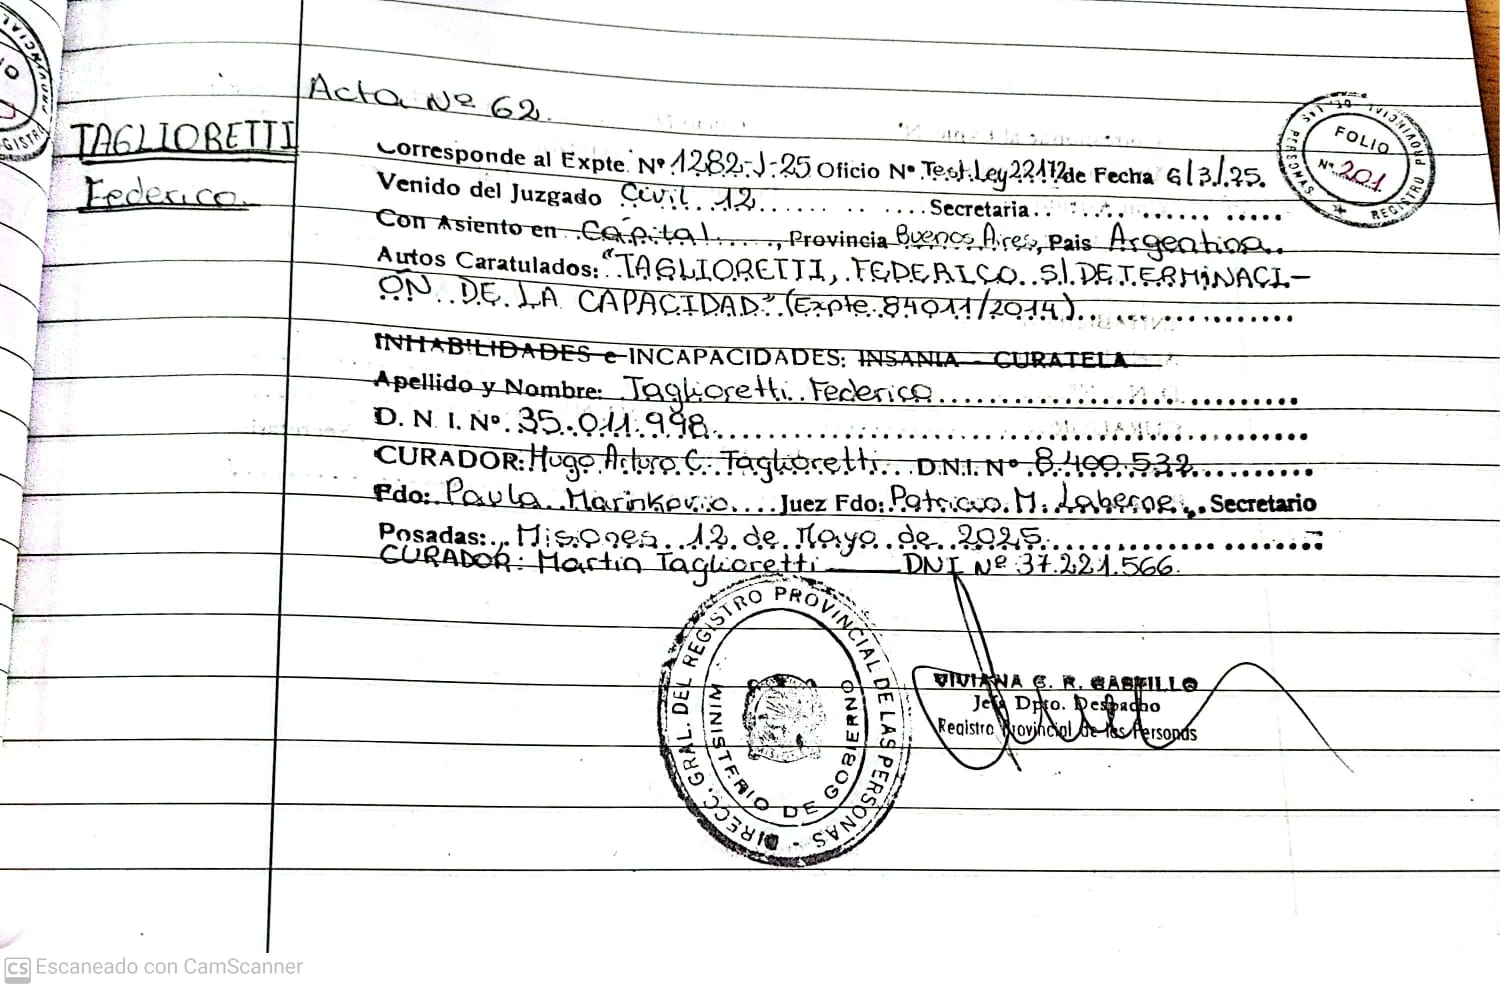 Acta Nº 62.
TAGLIORETTI
Federico.
Corresponde al Expte Nº 1282-J-25 Oficio Nº Test.Ley 22172 de Fecha 6/3/25.
Venido del Juzgado Civil 12 Secretaria
Con Asiento en Capital, Provincia Buenos Aires, Pais Argentina.
Autos Caratulados: "TAGLIORETTI, FEDERICO S/ DETERMINACI-
ÓN DE LA CAPACIDAD" (Expte 84011/2014)
INHABILIDADES e INCAPACIDADES: INSANIA - CURATELA
Apellido y Nombre: Taglioretti Federico
D. N. I. Nº 35.011.998
CURADOR: Hugo Arturo C. Taglioretti D.N.I. Nº 8.400.532
Fdo: Paula Marinkovic Juez Fdo: Patricio M. Laberne, Secretario
Posadas: Misiones 12 de Mayo de 2025
CURADOR: Martin Taglioretti DNI Nº 37.221.566.
FOLIO
Nº 201
REGISTRO PROVINCIAL DE LAS PERSONAS
DIRECC. GRAL. DEL REGISTRO PROVINCIAL DE LAS PERSONAS
MINISTERIO DE GOBIERNO
VIVIANA G. R. CASTILLO
Jefa Dpto. Despacho
Registro Provincial de las Personas
CS Escaneado con CamScanner